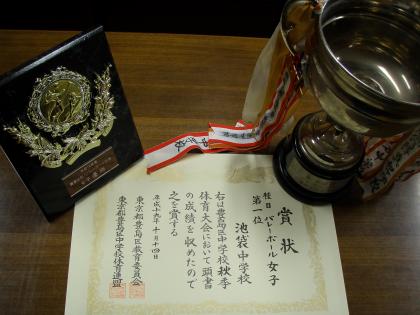 賞状
種目 バレーボール 女子
第一位
池袋中学校
右は豊島区中学校秋季
体育大会において頭書
の成績を収めたので
之を賞する
平成十九年十月十四日
東京都豊島区教育委員会
東京都豊島区中学校体育連盟